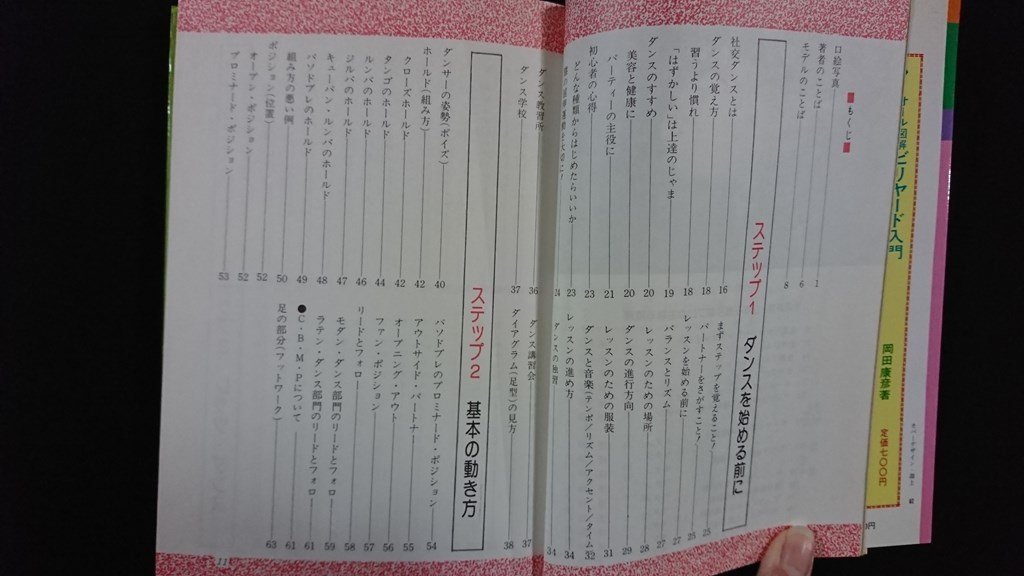 ■もくじ■
口絵写真 1
著者のことば 6
モデルのことば 8
ステップ1 ダンスを始める前に
社交ダンスとは 16
ダンスの覚え方 18
習うより慣れ 18
「はずかしい」は上達のじゃま 19
ダンスのすすめ 20
美容と健康に 20
パーティーの主役に 21
初心者の心得 23
どんな種類からはじめたらいいか 23
24
まずステップを覚えること! 25
パートナーをさがすこと! 25
レッスンを始める前に 27
バランスとリズム 27
レッスンのための場所 28
ダンスの進行方向 29
レッスンのための服装 31
ダンスと音楽(テンポ/リズム/アクセント/タイム) 32
レッスンの進め方 34
ダンスの独習 34
ダンス教習所 36
ダンス学校 37
ダンス講習会 37
ダイアグラム(足型)の見方 38
ステップ2 基本の動き方
ダンサーの姿勢(ポイズ) 40
ホールド(組み方) 42
クローズホールド 42
タンゴのホールド 44
ルンバのホールド 46
ジルバのホールド 47
キューバン・ルンバのホールド 48
パソドブレのホールド 49
組み方の悪い例 50
ポジション(位置) 52
オープン・ポジション 52
プロミナード・ポジション 53
パソドブレのプロミナード・ポジション 54
アウトサイド・パートナー 55
オープニング・アウト 56
ファン・ポジション 57
リードとフォロー 58
モダン・ダンス部門のリードとフォロー 59
ラテン・ダンス部門のリードとフォロー 61
●C・B・M・Pについて 61
足の部分(フットワーク) 63
11
図解ビリヤード入門
岡田康彦著
定価七〇〇円